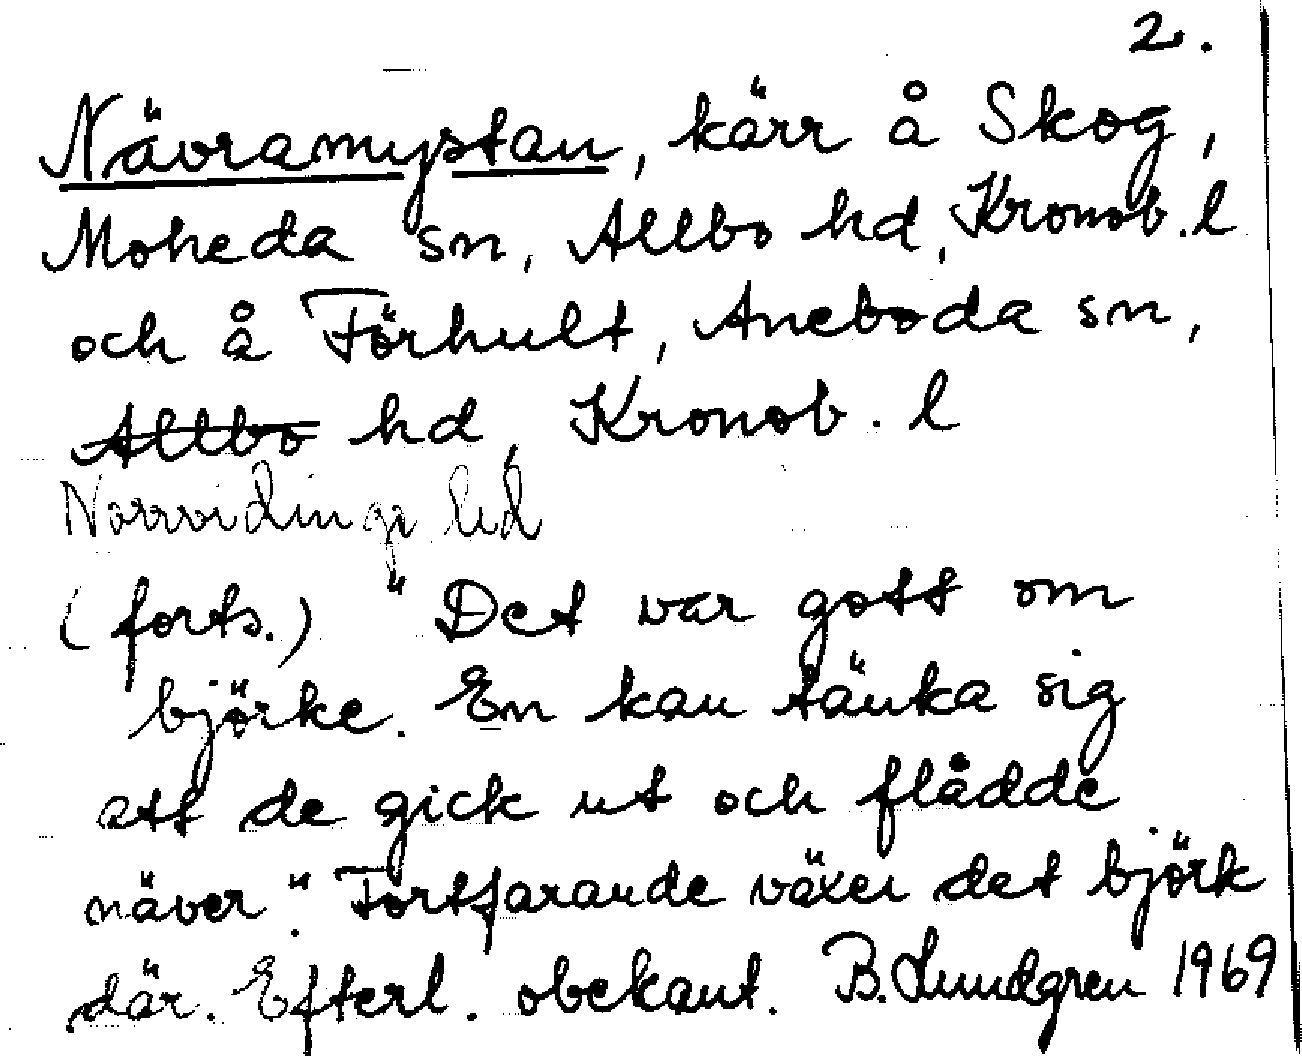 2.
Nävramystan, kärr å Skog,
Moheda sn, Allbo hd, Kronob. l
och å Förhult, Aneboda sn,
Allbo hd, Kronob. l
Norrvidinge hd
(forts.) "Det var gott om
björke. En kan tänka sig
att de gick ut och flådde
näver". Fortfarande växer det björk
där. Efterl. obekant. B. Lundgren 1969